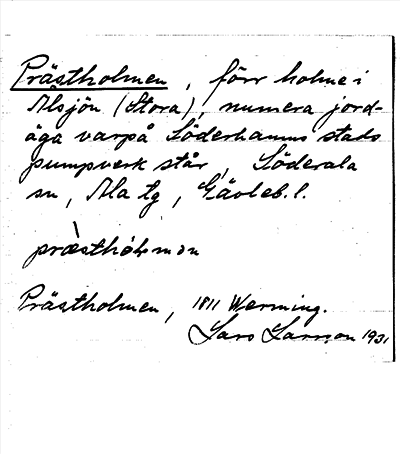 Prästholmen, förr holme i
Alsjön (Stora), numera jord-
äga varpå Söderhamns stads
pumpverk står, Söderala
sn, Ala tg, Gävleb. l.
præsthòlmən
Prästholmen, 1811 Werming.
Lars Larsson 1931